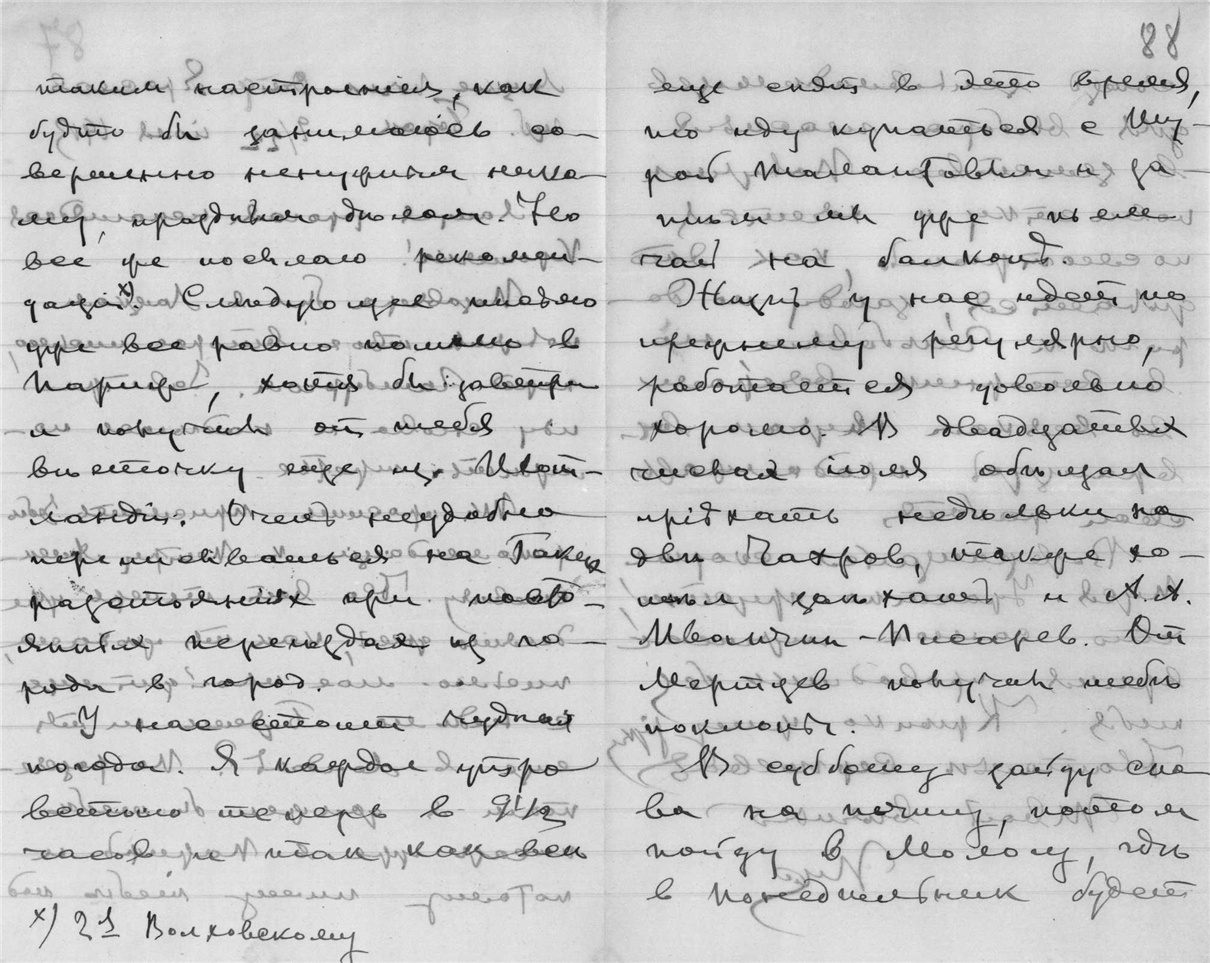 таким настроением, как
будто бы занимаюсь со-
вершенно ненужным нико-
му, праздным дѣлом. Но
все же посылаю рекомен-
даціи x). Слѣдующее письмо
уже все равно пошлю в
Париж, хотя бы завтра
я получил от тебя
вѣсточку еще из Шот-
ландіи. Очень неудобно
переписываться на таких
разстояніях при посто-
янных переѣздах из го-
рода в город.
У нас стоит чудная
погода. Я каждое утро
встаю теперь в 9 1/2
часов и так как всѣ
x) 2 Волховскому
88
еще спят в это время,
то иду купаться с Шу-
рой и за-
тѣм мы уже пьем
чай на балконѣ.
Жизнь у нас идет по
прежнему регулярно,
работается довольно
хорошо. В двадцатых
числах іюля обѣщал
пріѣхать недѣльки на
двѣ Чахров, также хо-
тѣл заѣхать и А. А.
Иванчин-Писарев. От
Мертцев получил тебѣ
поклоны.
В субботу зайду сно-
ва на почту, потом
пойду в Мологу, гдѣ
в понедѣльник будет